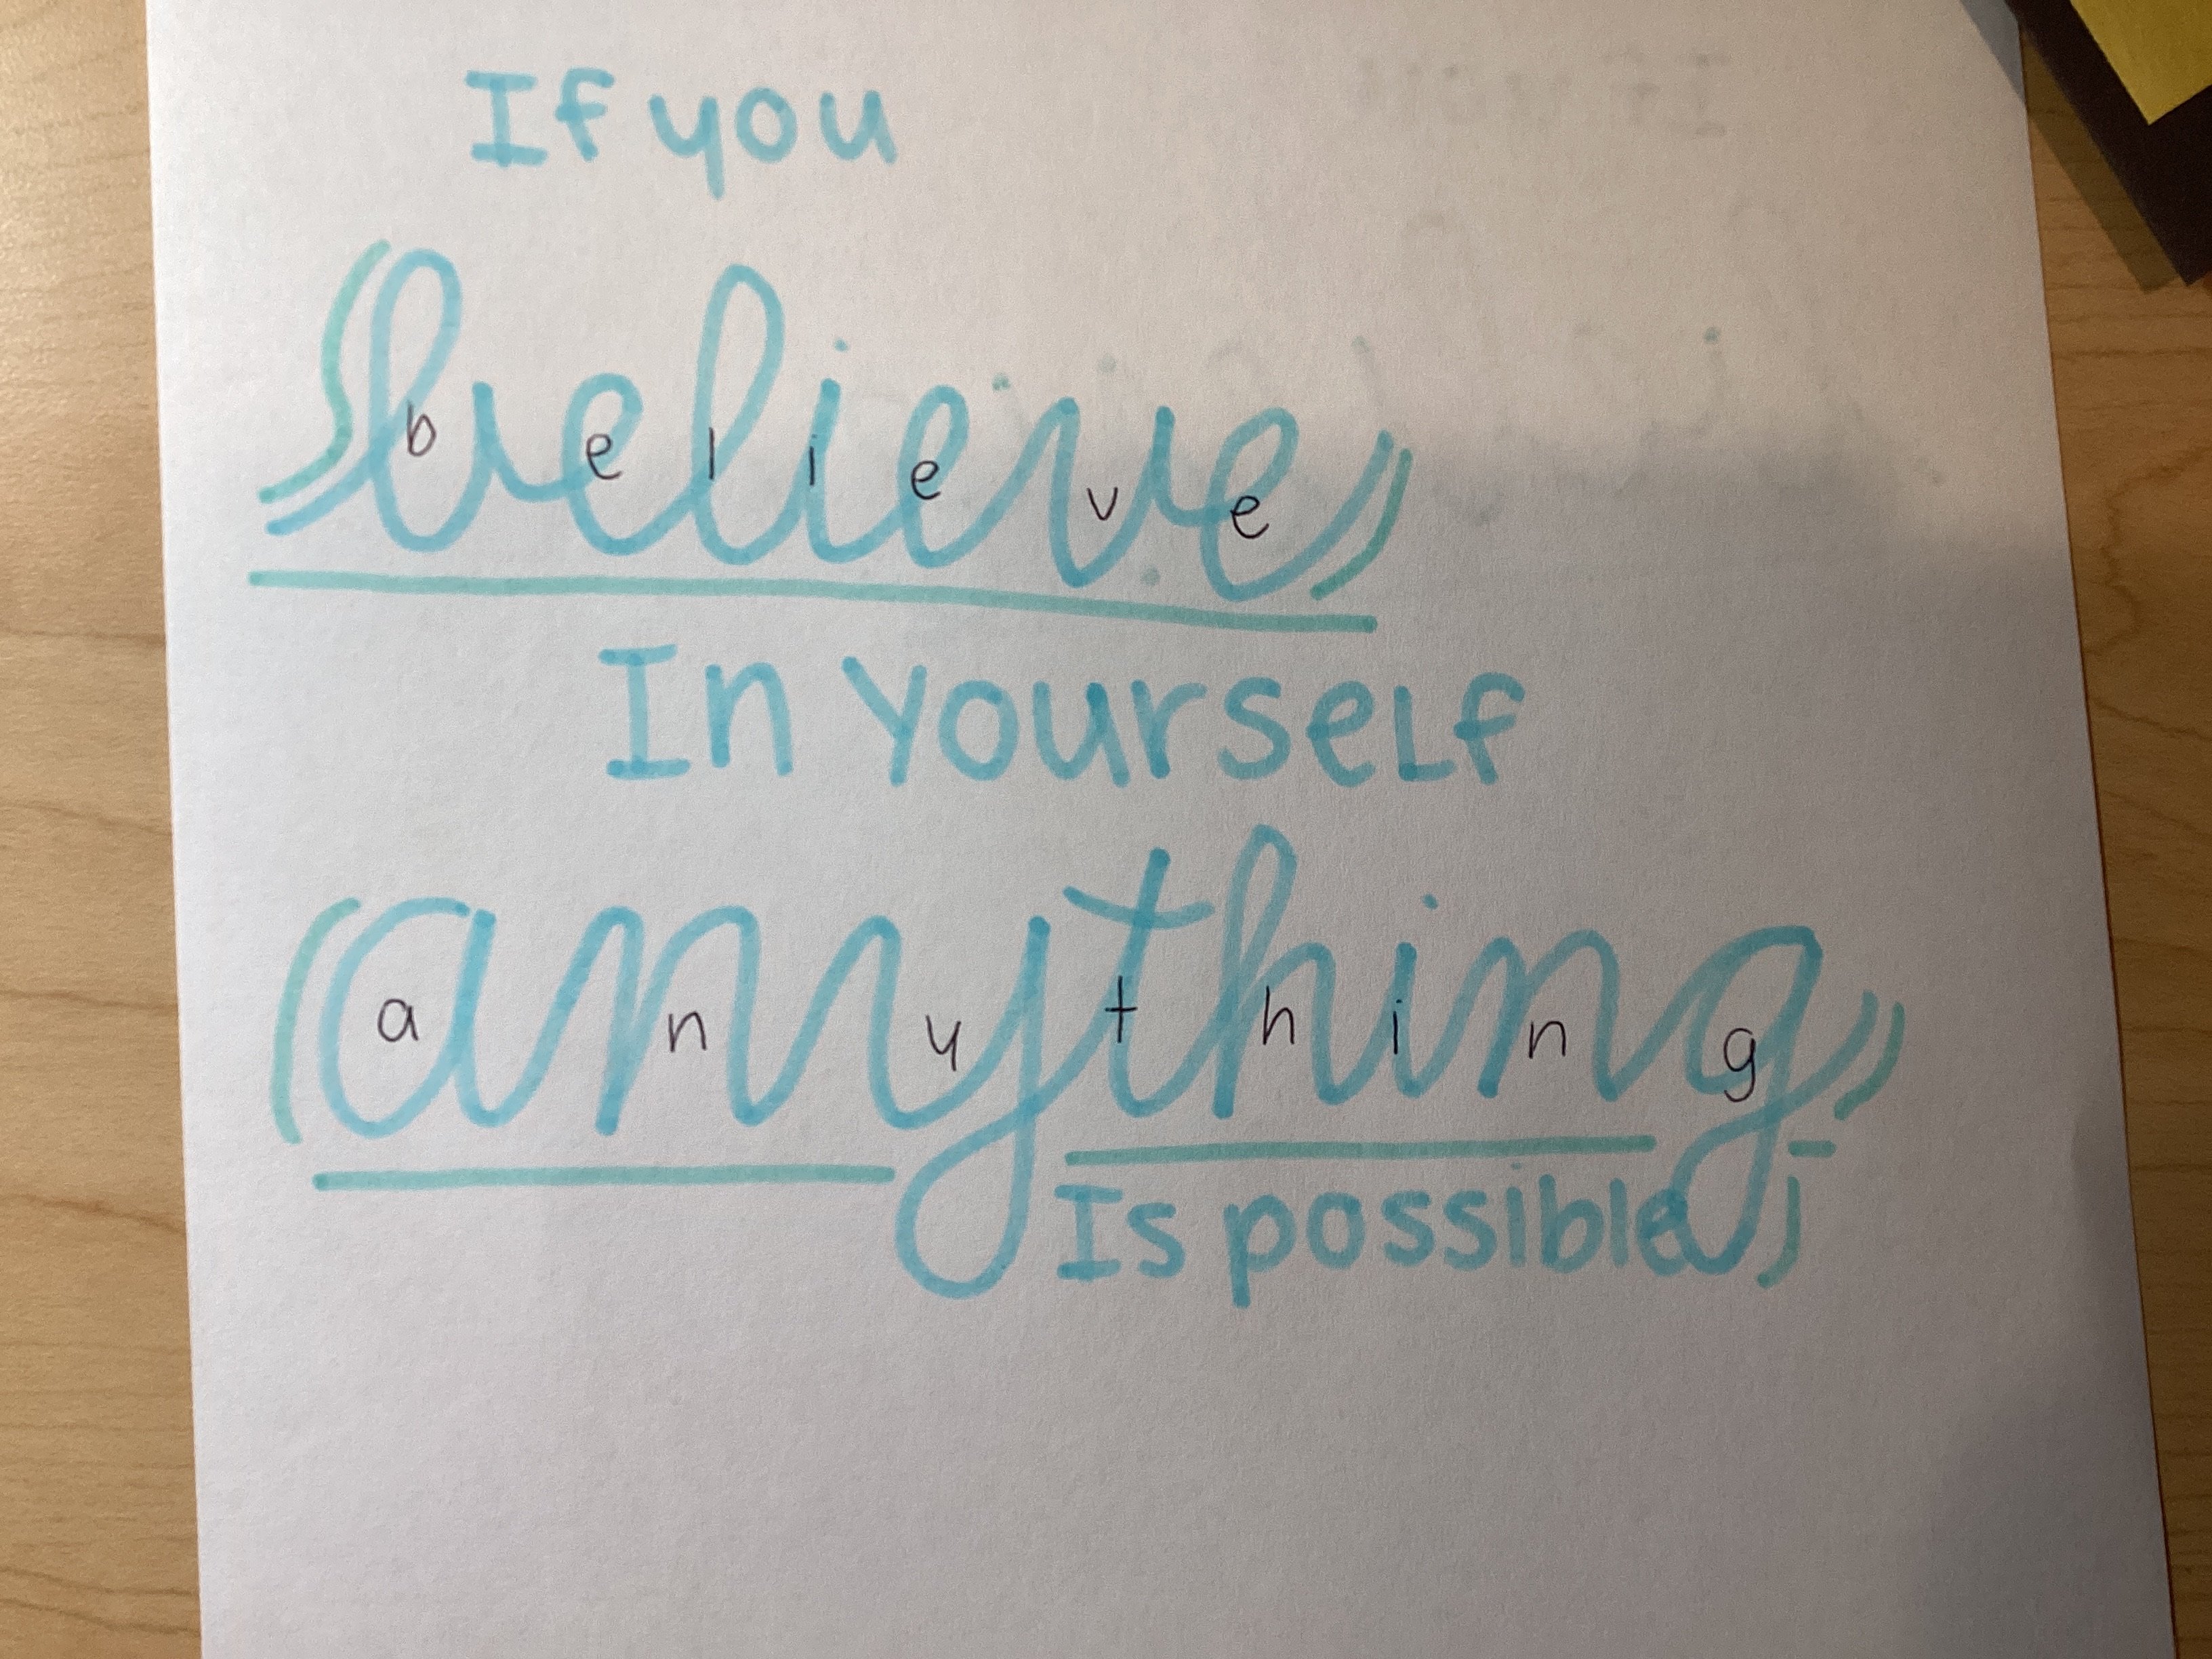 If you
believe
b e l i e v e
In YourseLf
anything
a n y t h i n g
Is possible